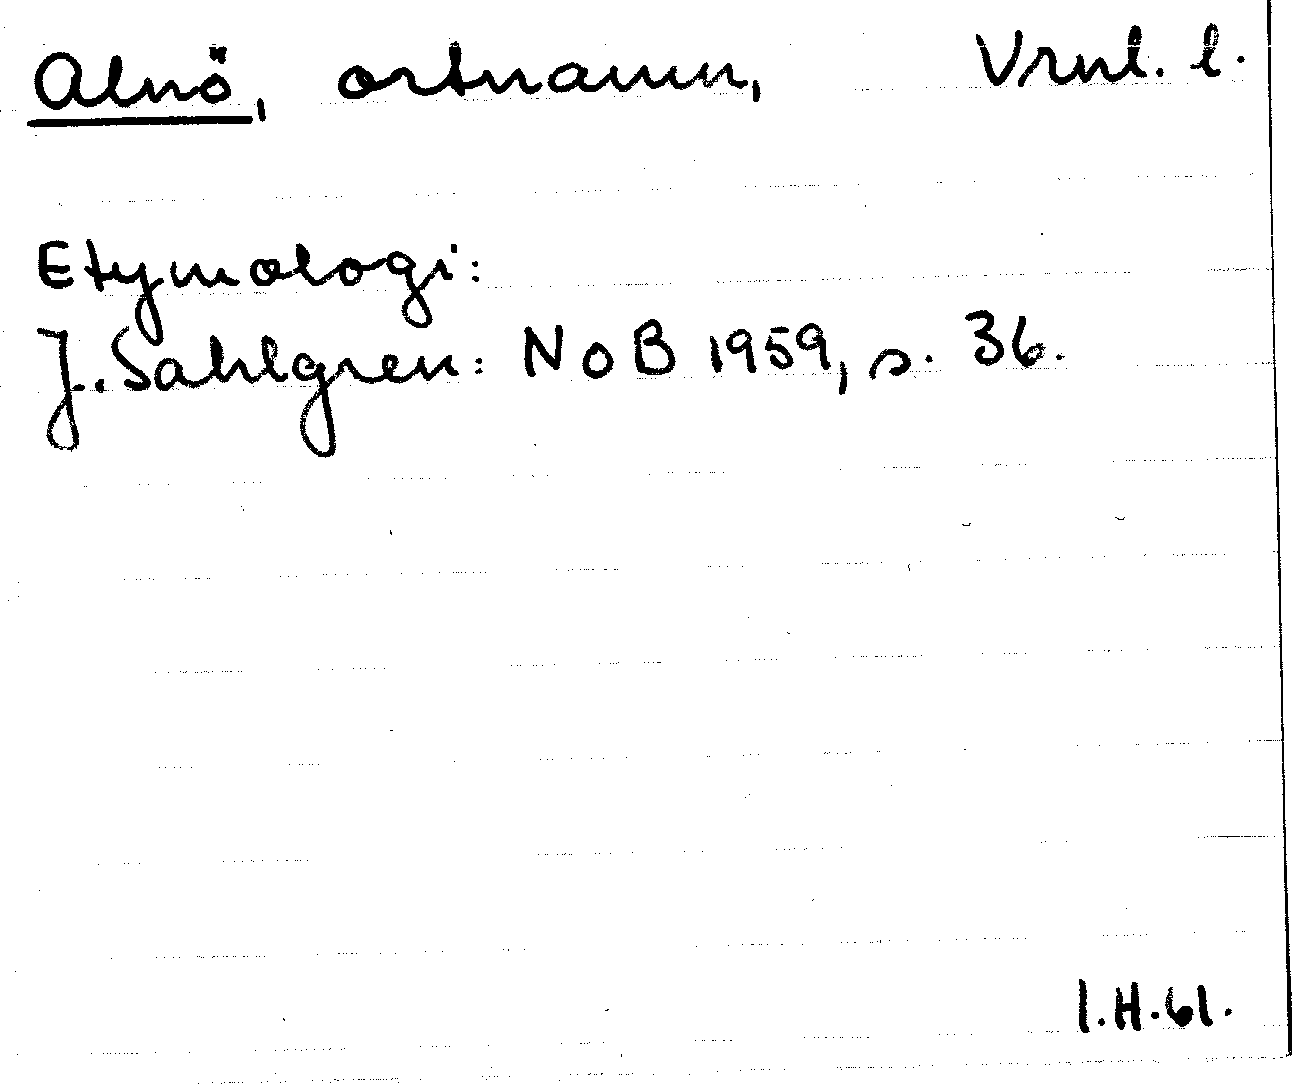 Alnö, ortnamn, Vrml. l.
Etymologi:
J. Sahlgren: NoB 1959, s. 36.
I.H.61.